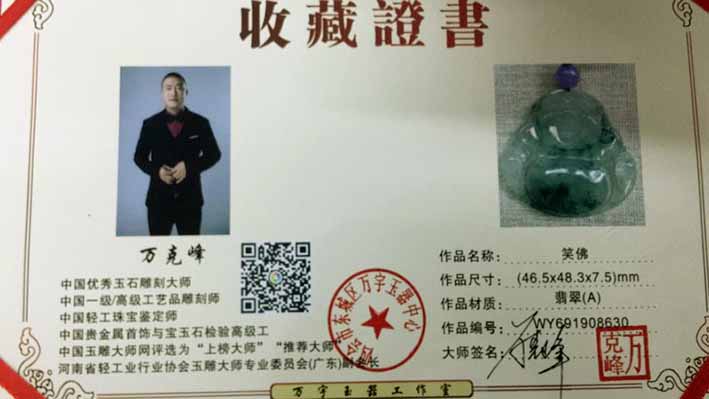 收藏證書
万克峰
中国优秀玉石雕刻大师
中国一级/高级工艺品雕刻师
中国轻工珠宝鉴定师
中国贵金属首饰与宝玉石检验高级工
中国玉雕大师网评选为“上榜大师”“推荐大师”
河南省轻工业行业协会玉雕大师专业委员会(广东)副会长
作品名称：笑佛
作品尺寸：(46.5x48.3x7.5)mm
作品材质：翡翠(A)
作品编号：WY691908630
大师签名：
万克峰
市东城区万宇玉器中心
万宇玉器工作室